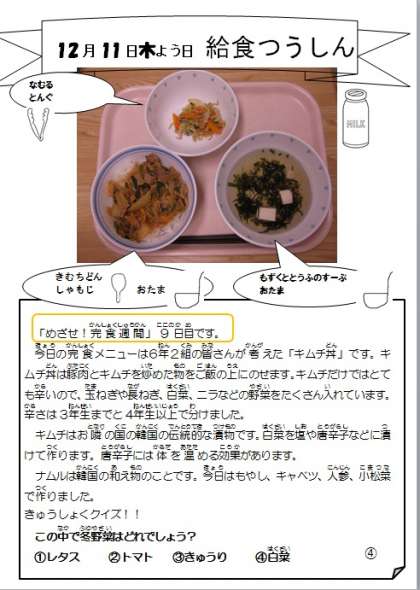 12月11日木よう日 給食つうしん
なむる
とんぐ
MILK
きむちどん
しゃもじ おたま
もずくととうふのすーぷ
おたま
「めざせ！完食週間」９日目です。
今日の完食メニューは６年２組の皆さんが考えた「キムチ丼」です。キ
ムチ丼は豚肉とキムチを炒めた物をご飯の上にのせます。キムチだけではとて
も辛いので、玉ねぎや長ねぎ、白菜、ニラなどの野菜をたくさん入れています。
辛さは３年生までと４年生以上で分けました。
キムチはお隣の国の韓国の伝統的な漬物です。白菜を塩や唐辛子などに漬
けて作ります。唐辛子には体を温める効果があります。
ナムルは韓国の和え物のことです。今日はもやし、キャベツ、人参、小松菜
で作りました。
きゅうしょくクイズ！！
この中で冬野菜はどれでしょう？
①レタス ②トマト ③きゅうり ④白菜 ④